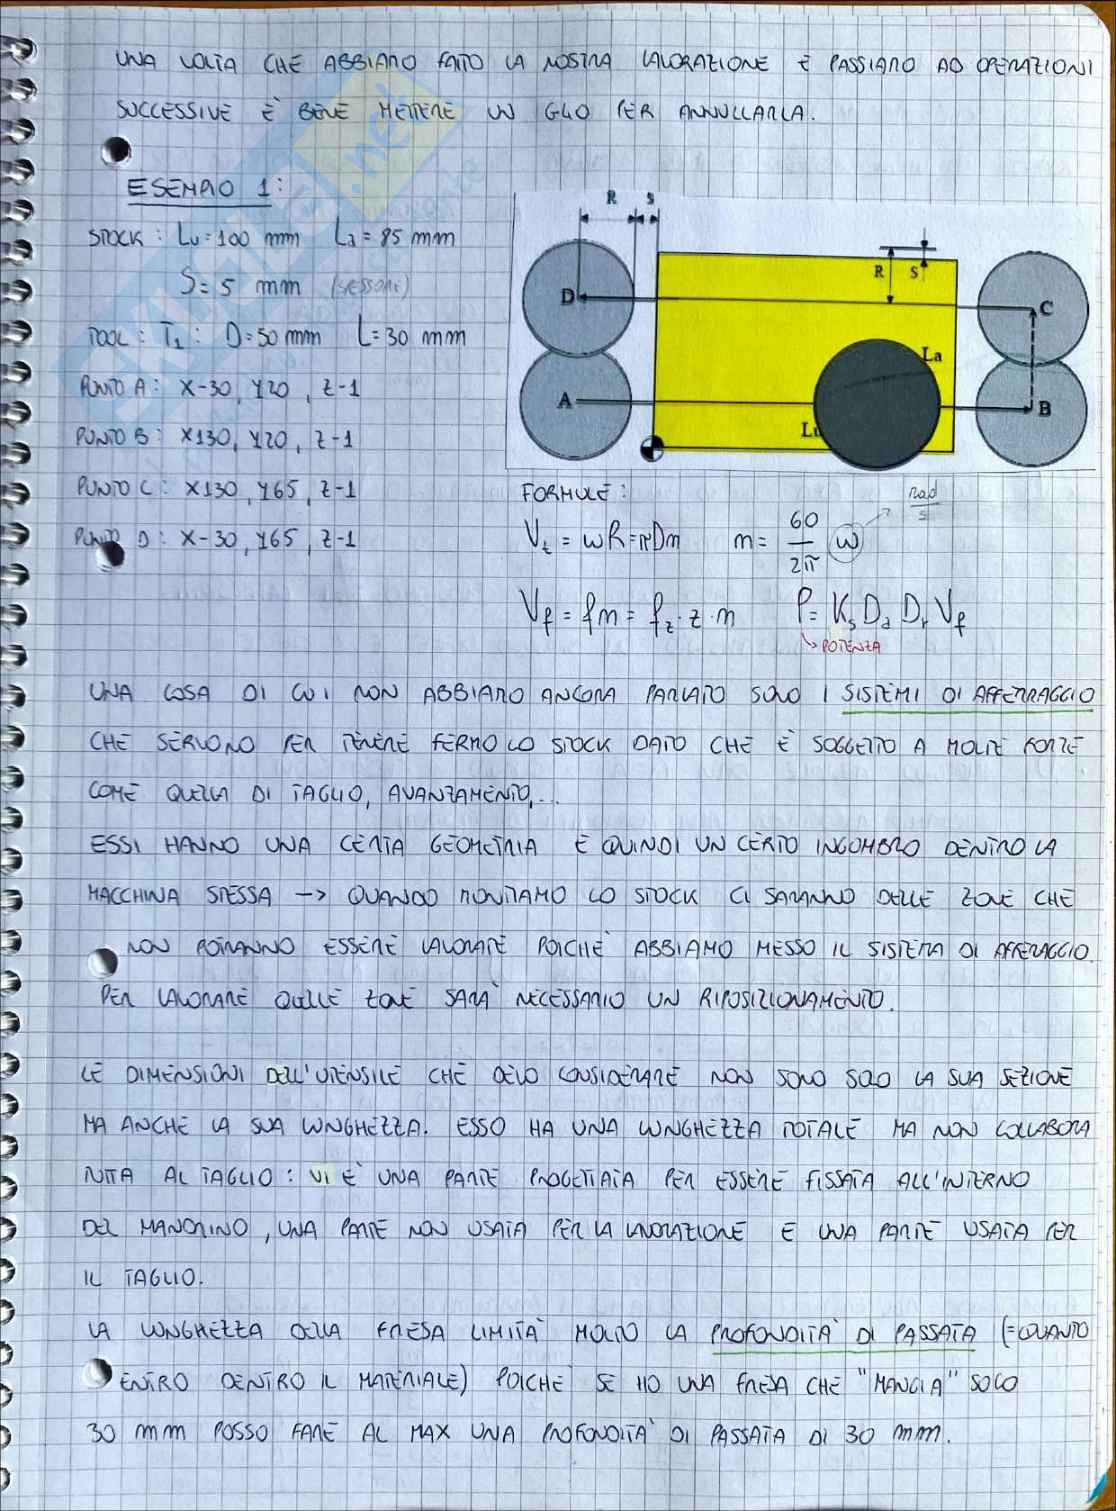 UNA VOLTA CHE ABBIAMO FATTO LA NOSTRA LAVORAZIONE E PASSIAMO AD OPERAZIONI
SUCCESSIVE È BENE METTERE UN G40 PER ANNULLARLA.
ESEMPIO 1:
STOCK: Lu=100 mm La=85 mm
S=5 mm (sessore)
TOOL: T1: D=50 mm L=30 mm
PUNTO A: X-30, Y20, Z-1
PUNTO B: X130, Y20, Z-1
PUNTO C: X130, Y65, Z-1
PUNTO D: X-30, Y65, Z-1
R S
D R S C
La
A B
Lu
FORMULE:
Vt = ωR = πDn n = 60/2π ω → rad/s
Vf = fn = fz·z·n P = Ks Da Dr Vf
↳ POTENZA
UNA COSA DI CUI NON ABBIAMO ANCORA PARLATO SONO I SISTEMI DI AFFERRAGGIO
CHE SERVONO PER TENERE FERMO LO STOCK DATO CHE È SOGGETTO A MOLTE FORZE
COME QUELLA DI TAGLIO, AVANZAMENTO,...
ESSI HANNO UNA CERTA GEOMETRIA E QUINDI UN CERTO INGOMBRO DENTRO LA
MACCHINA STESSA → QUANDO MONTIAMO LO STOCK CI SARANNO DELLE ZONE CHE
NON POTRANNO ESSERE LAVORATE POICHÉ ABBIAMO MESSO IL SISTEMA DI AFFERAGGIO.
PER LAVORARE QUELLE ZONE SARÀ NECESSARIO UN RIPOSIZIONAMENTO.
LE DIMENSIONI DELL'UTENSILE CHE DEVO CONSIDERARE NON SONO SOLO LA SUA SEZIONE
MA ANCHE LA SUA LUNGHEZZA. ESSO HA UNA LUNGHEZZA TOTALE MA NON COLLABORA
TUTTA AL TAGLIO: VI È UNA PARTE PROGETTATA PER ESSERE FISSATA ALL'INTERNO
DEL MANDRINO, UNA PARTE NON USATA PER LA LAVORAZIONE E UNA PARTE USATA PER
IL TAGLIO.
LA LUNGHEZZA DELLA FRESA LIMITA MOLTO LA PROFONDITÀ DI PASSATA (=QUANTO
ENTRO DENTRO IL MATERIALE) POICHÉ SE HO UNA FRESA CHE "MANGIA" SOLO
30 mm POSSO FARE AL MAX UNA PROFONDITÀ DI PASSATA DI 30 mm.